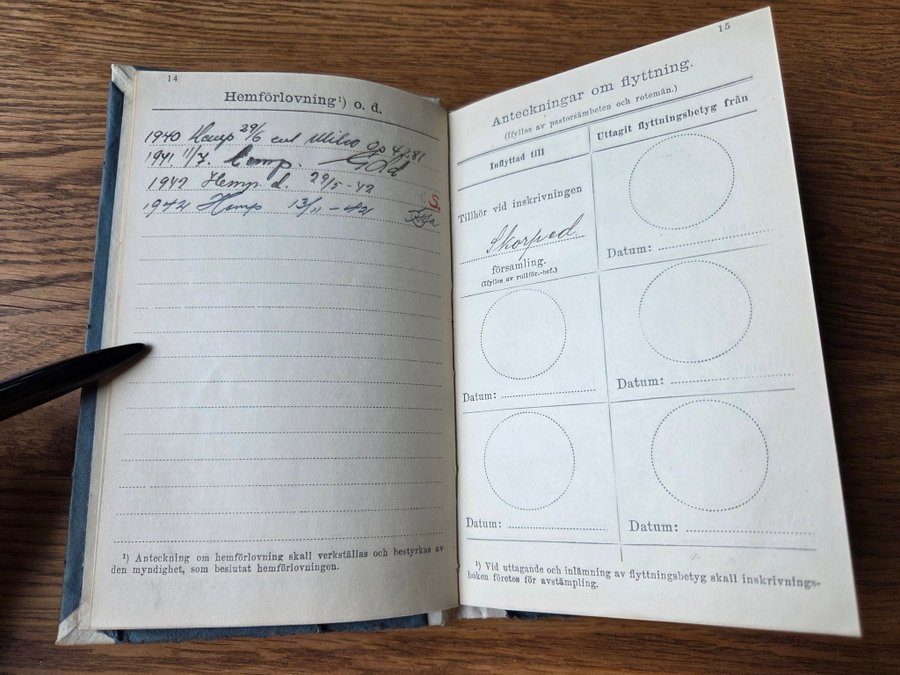 14
Hemförlovning¹) o. d.
1940 Hemp 29/6 enl Milbo Op 4281
1941 11/7. hemp.
1942 Hemp d. 29/5-42
S.
1942 Hemp 13/11-42
¹) Anteckning om hemförlovning skall verkställas och bestyrkas av
den myndighet, som beslutat hemförlovningen.
15
Anteckningar om flyttning.
(Ifyllas av pastorsämbeten och rotemän.)
Inflyttad till
Uttagit flyttningsbetyg från
Tillhör vid inskrivningen
Skorped
församling.
(Ifylles av rullför.-bef.)
Datum:
Datum:
Datum:
Datum:
Datum:
¹) Vid uttagande och inlämning av flyttningsbetyg skall inskrivnings-
boken företes för avstämpling.